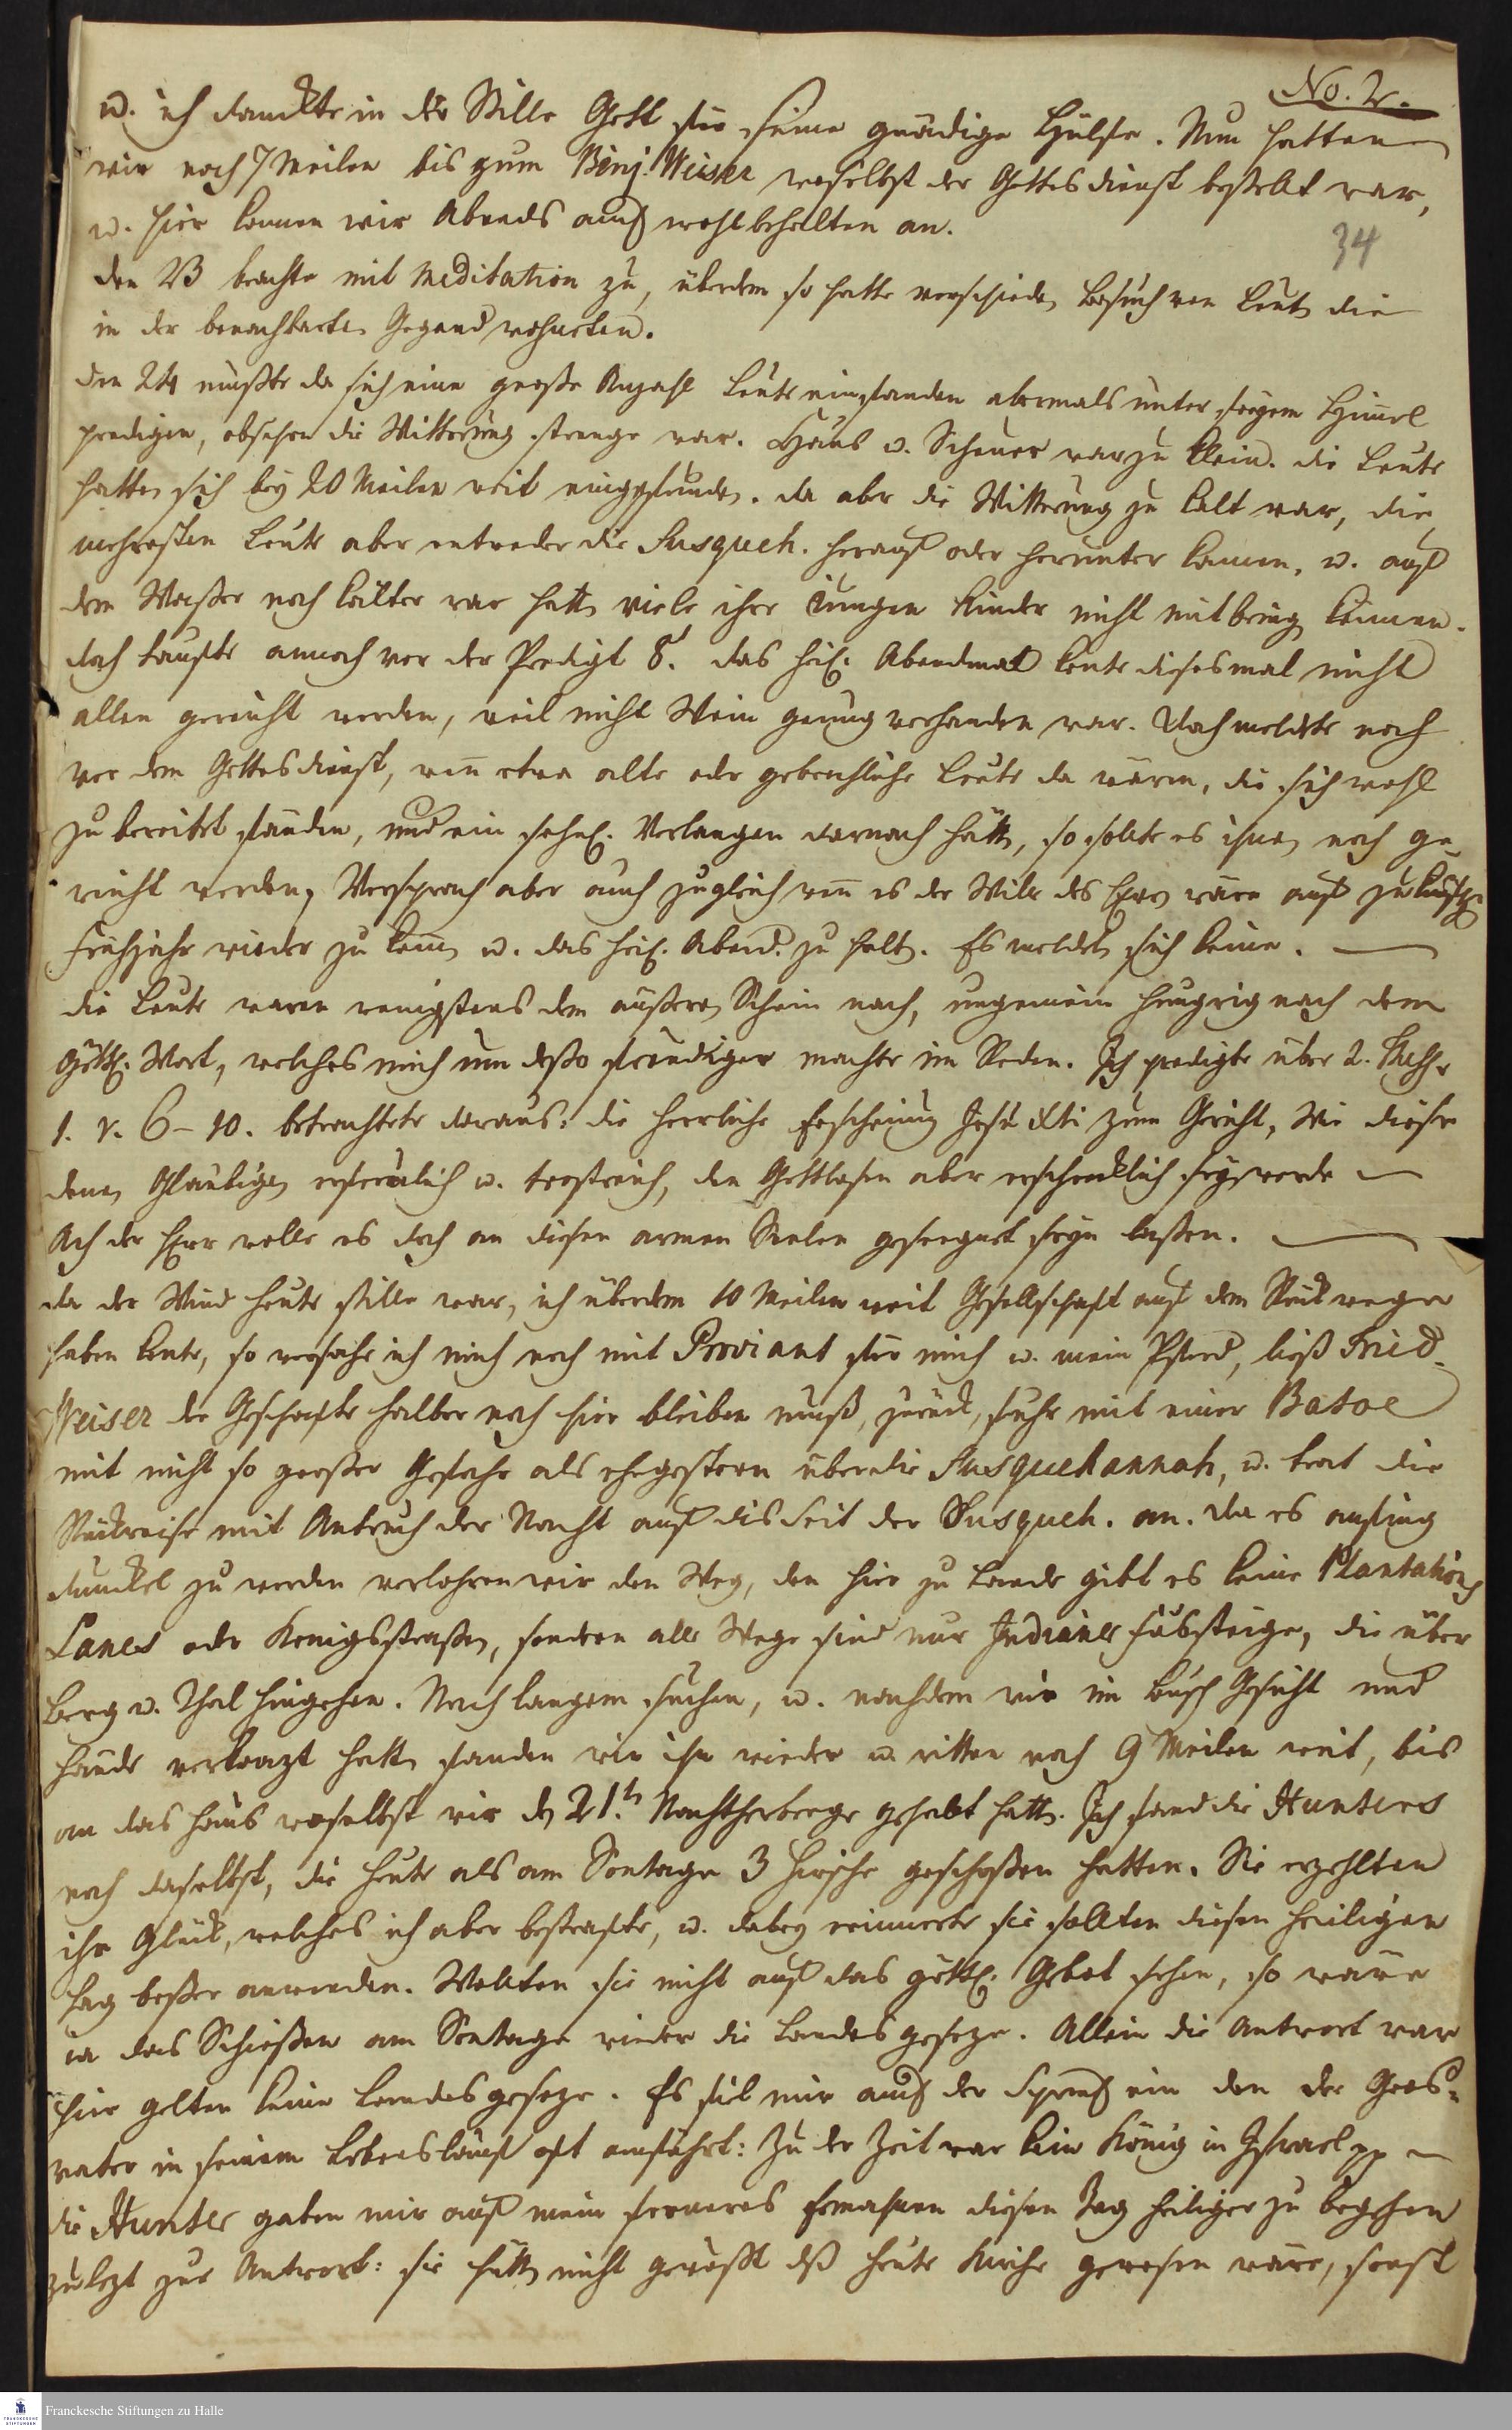 No. 2.
u. ich danckte in der Stille Gott für seine gnädige Hülfe. Nun hatten
wir noch 7 Meilen bis zum Benj. Weiser woselbst der Gottesdienst bestelt war,
u. hier kamen wir Abends auch wohlbehalten an.
34
den 23 brachte mit Meditation zu, überdem so hatte verschieden Besuch von Leuten die
in der benachbarten Gegend wohnten.
den 24 mußte da sich eine große Anzahl Leute einfanden abermals unter freyem Himel
predigen, obschon die Witterung strenge war. Haus u. Scheuer war zu klein. die Leute
hatten sich bey 20 Meilen weit eingefunden. da aber die Witterung zu kalt war, die
mehresten Leute aber entweder die Susqueh. herauf oder herunter kamen, u. auf
dem Waßer noch kälter war hatten viele ihre Jungen Kinder nicht mitbringen können.
doch taufte annoch vor der Predigt 8. das heil. Abendmal konte diesesmal nicht
allen gereicht werden, weil nicht Wein genug vorhanden war. Doch meldete noch
vor dem Gottesdienst, wen etwa alte oder gebrechliche Leute da wären, die sich wohl
zu bereitet fänden, und ein sehnl. Verlangen darnach hätten, so solte es ihnen noch ge-
reicht werden, Versprach aber auch zugleich wen es der Wille des Herrn wäre auf zukünftges
Frühjahr wieder zu komen u. das heil. Abend. zu halten. Es meldeten sich keine. —
die Leute waren wenigstens dem äußeren Schein nach, ungemein hungrig nach dem
Göttl. Wort, welches mich um desto freudiger machte im Reden. Ich predigte über 2. Thess.
1. v. 6-10. betrachtete daraus: die herrliche Erscheinung Jesu Xti zum Gericht, Wie diese
denen Gläubigen erfreulich u. trostreich, den Gottlosen aber erschrecklich seyn werde —
Ach der Herr wolle es doch an diesen armen Seelen gesegnet seyn laßen. —
da der Wind heute stille war, ich überdem 10 Meilen weit Gesellschaft auf dem Rückwege
haben konte, so versahe ich mich noch mit Proviant für mich u. mein Pferd, ließ Fried.
Weiser der Geschäfte halber noch hier bleiben muß, zurück, fuhr mit einer Batoe
mit nicht so großer Gefahr als ehegestern über die Susquehannah, u. trat die
Rückreise mit Anbruch der Nacht auf disseit der Susqueh. an. Da es anfing
dunckel zu werden verlohren wir den Weg, den hier zu Lande gibt es keine Plantations
Lanes oder Königsstraßen, sondern alle Wege sind nur Indianer Fußsteige, die über
Berg u. Thal hingehen. Nach langem suchen, u. nachdem wir im Busch Gesicht und
Hände verkrazt hatten fanden wir ihn wieder u. ritten noch 9 Meilen weit, bis
an das Haus woselbst wir den 21.ten Nachtherberge gehabt hatten. Ich fand die Hunters
noch daselbst, die heute als am Sontage 3 Hirsche geschoßen hatten. Sie erzehlten
ihr Glück, welches ich aber bestrafte, u. dabey erinnerte sie sollten diesen heiligen
Tag beßer anwenden. Wollten sie nicht auf das göttl. Gebot sehen, so wäre
ia das Schießen am Sontage wieder die Landesgeseze. Allein die Antwort war
hier gelten keine Landesgeseze. Es fiel mir auch der Spruch ein den der Gros-
vater in seinem Lebenslauf oft anführt: Zu der Zeit war kein König in Israel pp —
die Hunter gaben mir auf mein ferneres Ermahnen diesen Tag heiliger zu begehen
zulezt zur Antwort: sie hätten nicht gewußt daß heute Kirche gewesen wäre, sonst
Franckesche Stiftungen zu Halle